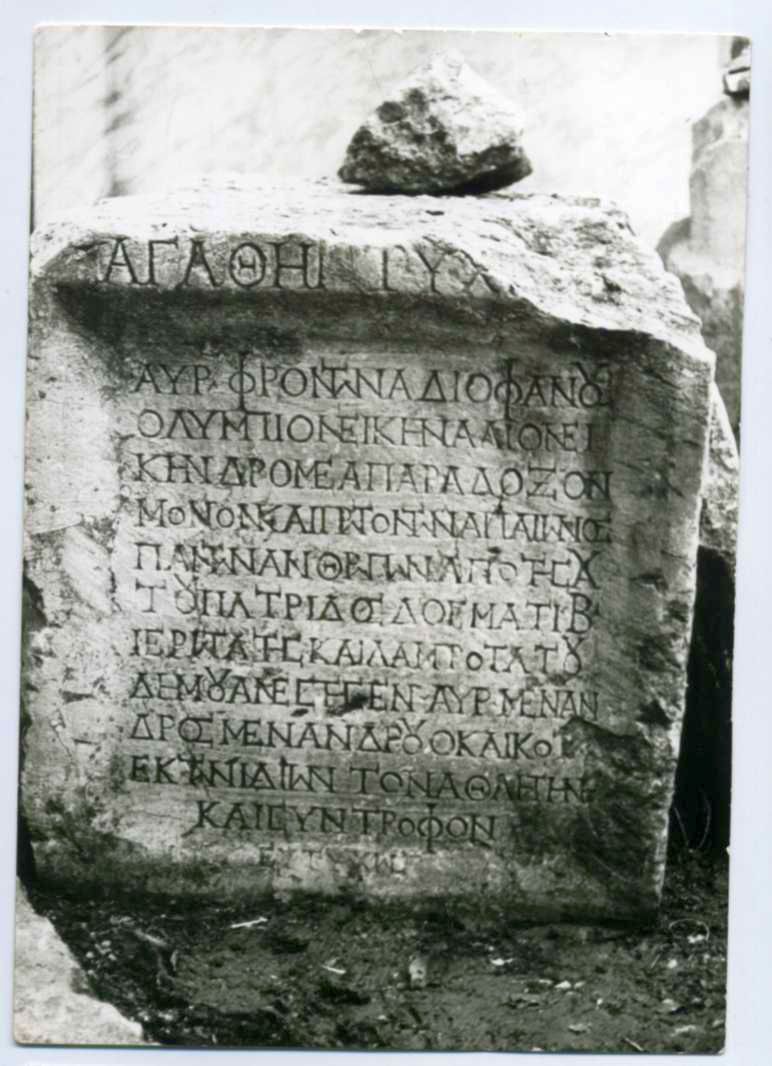 ΑΓΑΘΗΙ ΤΥΧ
ΑΥΡ ΦΡΟΝΤΩΝΑ ΔΙΟΦΑΝΟΥΣ
ΟΛΥΜΠΙΟΝΕΙΚΗΝ ΑΛΙΟΝΕΙ
ΚΗΝ ΔΡΟΜΕΑ ΠΑΡΑΔΟΞΟΝ
ΜΟΝΟΝ ΚΑΙ ΠΡΩΤΟΝ ΤΩΝ ΑΠ ΑΙΩΝΟΣ
ΠΑΝΤΩΝ ΑΝΘΡΩΠΩΝ ΑΠΟ ΤΗΣ Χ
ΤΟΥ ΠΑΤΡΙΔΟΣ ΔΟΓΜΑΤΙ Β
ΙΕΡΩΤΑΤΗΣ ΚΑΙ ΛΑΜΠΡΟΤΑΤΟΥ
ΔΗΜΟΥ ΑΝΕΣΤΗΣΕΝ ΑΥΡ ΜΕΝΑΝ
ΔΡΟΣ ΜΕΝΑΝΔΡΟΥ Ο ΚΑΙ ΚΟ
ΕΚ ΤΩΝ ΙΔΙΩΝ ΤΟΝ ΑΘΛΗΤΗΝ
ΚΑΙ ΣΥΝΤΡΟΦΟΝ
ΕΥΤΥΧΩΣ